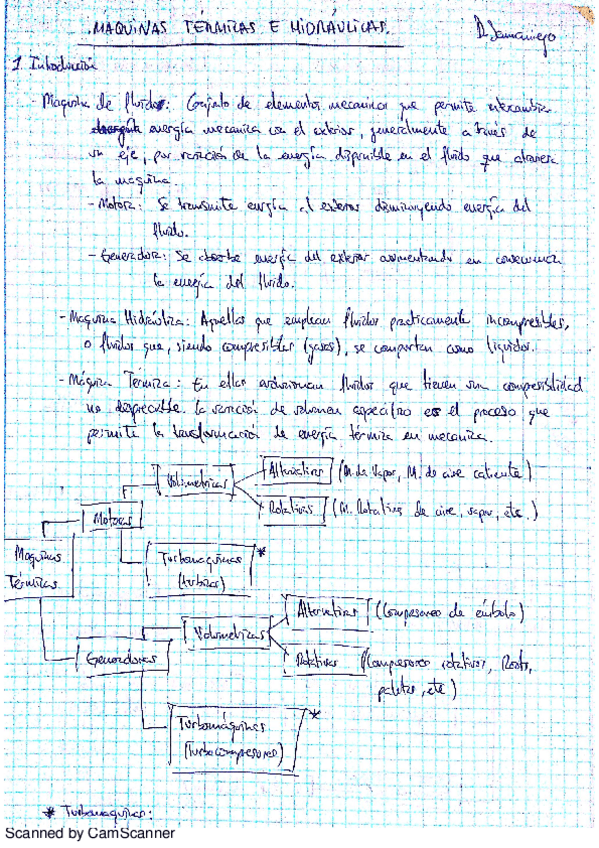 MÁQUINAS TÉRMICAS E HIDRÁULICAS.
D. Samaniego
1 Introducción
- Maquina de fluidos: Conjunto de elementos mecanicos que permite intercambiar
energía mecanica con el exterior, generalmente a través de
un eje, por variación de la energía disponible en el fluido que atraviesa
la maquina.
- Motora: Se transmite energía al exterior disminuyendo energía del
fluido.
- Generadora: Se absorbe energía del exterior aumentando en consecuencia
la energía del fluido.
- Maquina Hidráulica: Aquellas que emplean fluidos practicamente incompresibles,
o fluidos que, siendo compresibles (gases), se comportan como liquidos.
- Máquina Térmica: En ellas evolucionan fluidos que tienen una compresibilidad
no despreciable. La variación de volumen específico es el proceso que
permite la transformación de energía térmica en mecanica.
Volumetricas
Alternativas (M. de Vapor, M. de aire caliente)
Rotativas (M. Rotativas de aire, vapor, etc.)
Motoras
Turbomaquinas *
(turbinas)
Maquinas
Térmicas
Volumetricas
Alternativas (Compresores de émbolo)
Generadoras
Rotativas (Compresores rotativos, Roots,
paletas, etc)
Turbomáquinas *
(Turbocompresores)
* Turbomaquinas:
Scanned by CamScanner